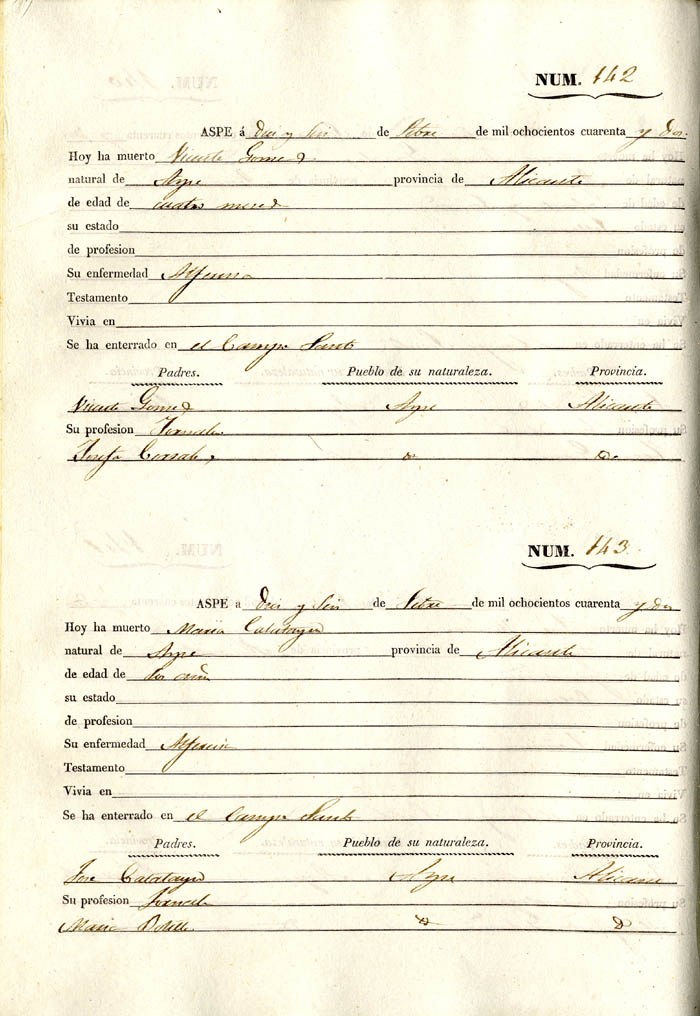 NUM. 142
ASPE á Diez y Seis de 7bre de mil ochocientos cuarenta y dos
Hoy ha muerto Vicente Gomez
natural de Aspe provincia de Alicante
de edad de cuatro meses
su estado
de profesion
Su enfermedad Alferecia
Testamento
Vivia en
Se ha enterrado en el Campo Santo
Padres. Pueblo de su naturaleza. Provincia.
Vicente Gomez Aspe Alicante
Su profesion Jornalero
Josefa
NUM. 143
ASPE a Diez y Seis de de mil ochocientos cuarenta y dos
Hoy ha muerto Maria Calatayud
natural de Aspe provincia de Alicante
de edad de dos años
su estado
de profesion
Su enfermedad Alferecia
Testamento
Vivia en
Se ha enterrado en el Campo Santo
Padres. Pueblo de su naturaleza. Provincia.
Jose Calatayud Aspe Alicante
Su profesion Jornalero
Maria